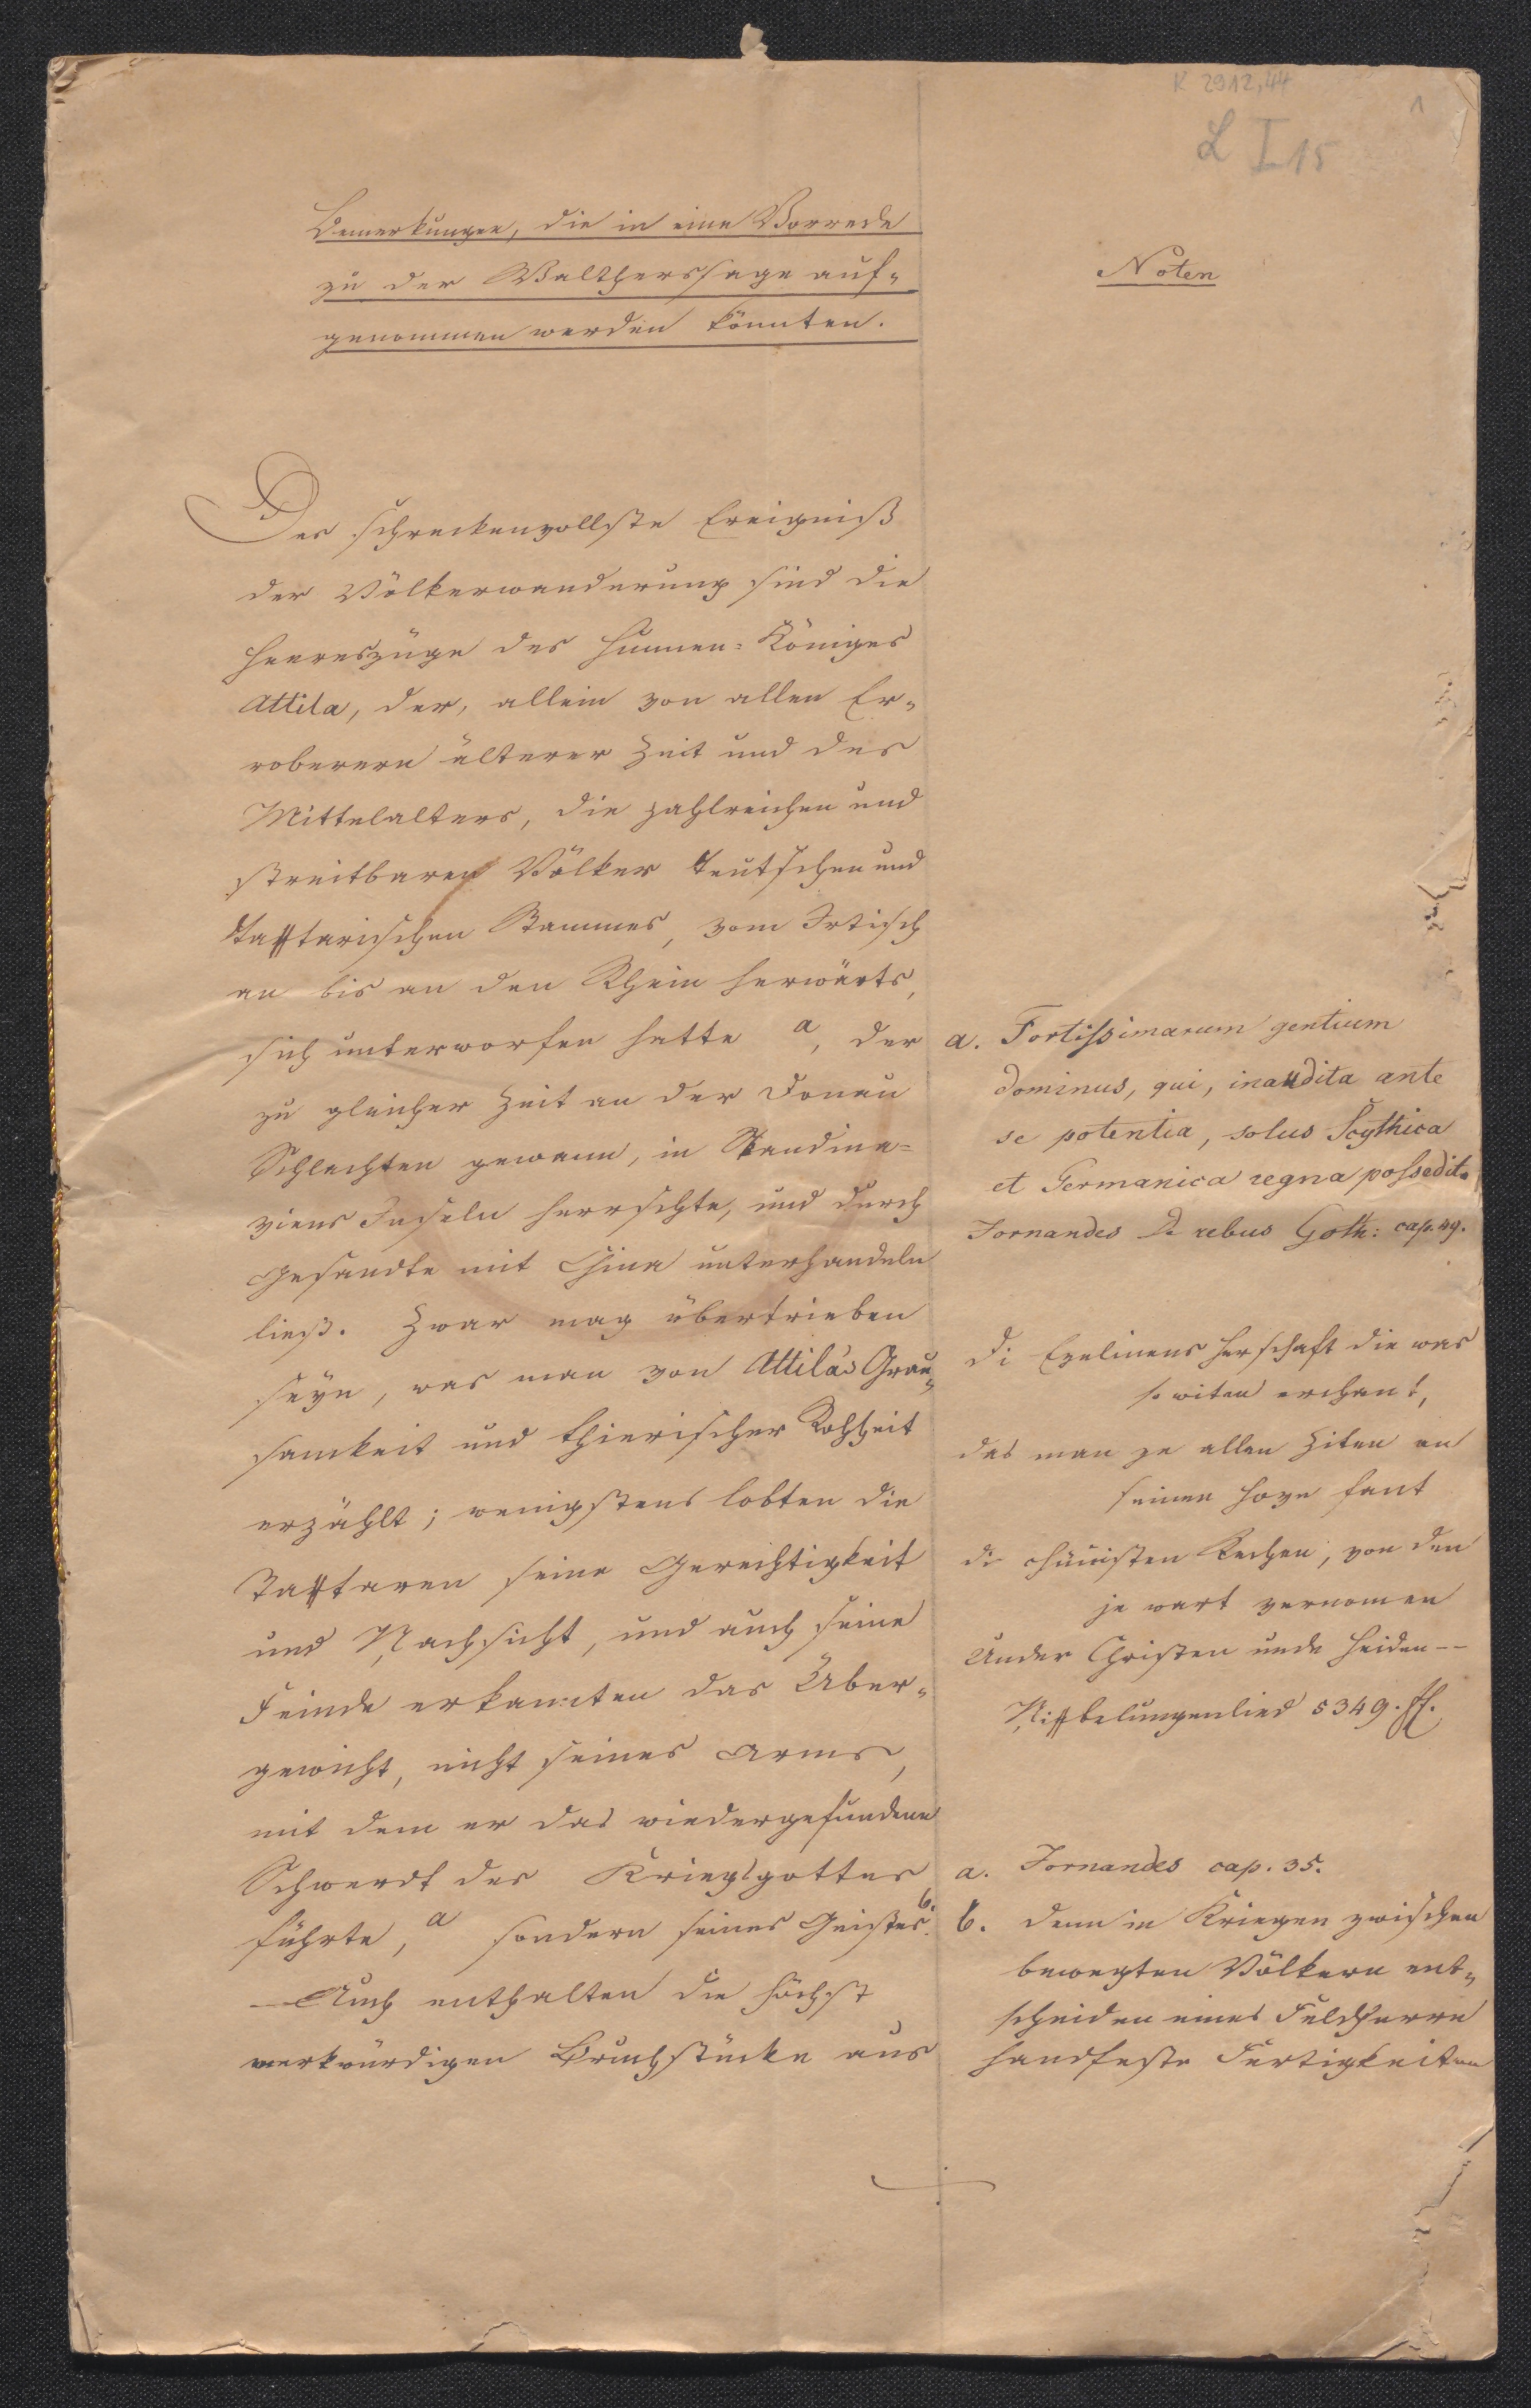 K 2912,44
1
L I 15
Bemerkungen, die in eine Vorrede
zu der Walthersage auf-
genommen werden könnten.
Noten
Das schreckenvollste Ereigniß
der Völkerwanderung sind die
Heereszüge des Hunnen-Königes
Attila, der, allein von allen Er-
oberern älterer Zeit und des
Mittelalters, die zahlreichen und
streitbaren Völker teutschen und
tattarischen Stammes, vom Irtisch
an bis an den Rhein herwärts,
sich unterworfen hatte a, der
zu gleicher Zeit an der Donau
Schlachten gewann, in Skandina-
viens Inseln herrschte, und durch
Gesandte mit China unterhandeln
ließ. Zwar mag übertrieben
seyn, was man von Attila's Grau-
samkeit und thierischer Rohheit
erzählt; wenigstens lobten die
Tattaren seine Gerechtigkeit
und Nachsicht, und auch seine
Feinde erkannten das Über-
gewicht, nicht seines Arms,
mit dem er das wiedergefundene
Schwerdt des Kriegsgottes
führte, a sondern seines Geistes b.
— Auch enthalten die höchst
merkwürdigen Bruchstücke aus
a. Fortissimarum gentium
dominus, qui, inaudita ante
se potentia, solus Scythica
et Germanica regna possedit.
Jornandes De rebus Goth: cap. 49.
Di Ezelinens Herschaft die was
so witen erchant,
das man ze allen Ziten an
seinen Hove fant
di chünisten Rechen, von den
je wart vernomen
Under Christen unde Heiden--
Niebelungenlied 5349. ff.
a. Jornandes cap. 35.
b. denn in Kriegen zwischen
bewegten Völkern ent-
scheiden eines Feldherrn
handfeste Fertigkeiten